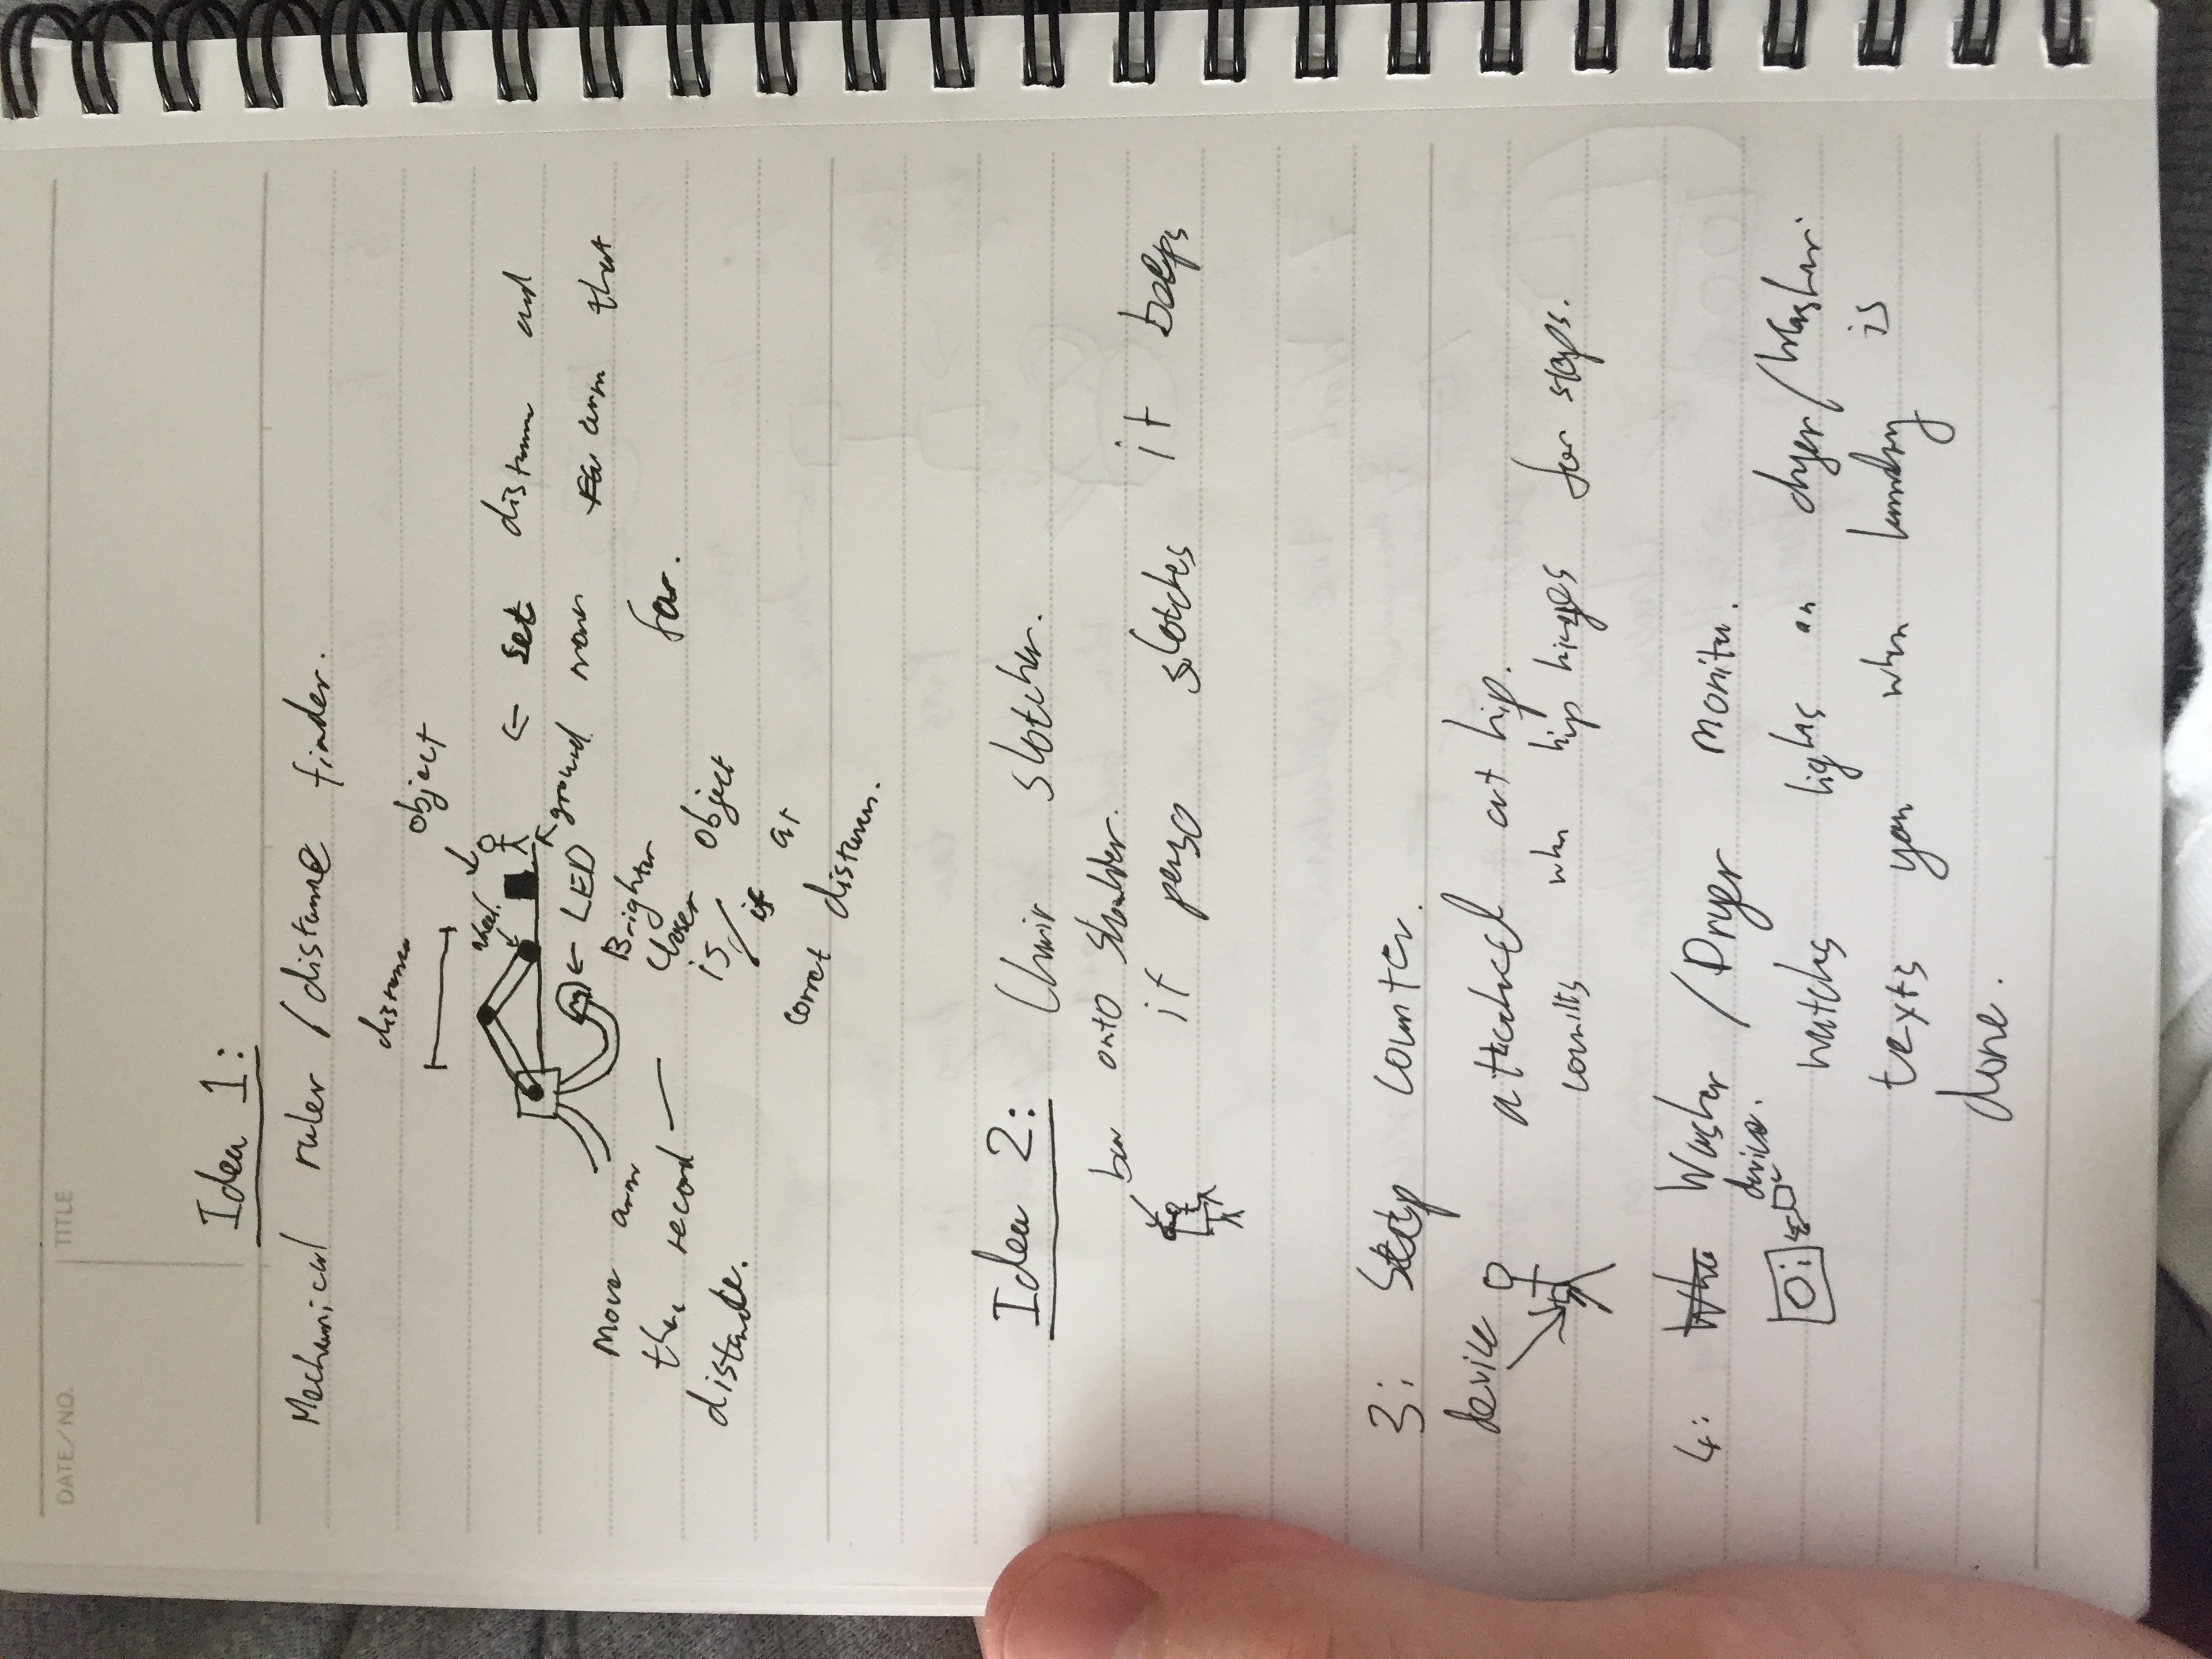 DATE/NO.
TITLE
Idea 1:
Mechanical ruler / distance finder.
distance
object
wheel.
← set distance and
move arm that
far.
ground
← LED
Move arm
then record
distance.
Brighter
closer
is / if object
at
corret distance.
Idea 2: Chair slotcher.
bar onto shoulder.
if perso slotches it beeps
3: Step counter.
device
attached at hip.
counts when hip hinges for steps.
4: Washer / Dryer monitor.
device.
watches lights on dryer / washer.
texts you when laundry is
done.